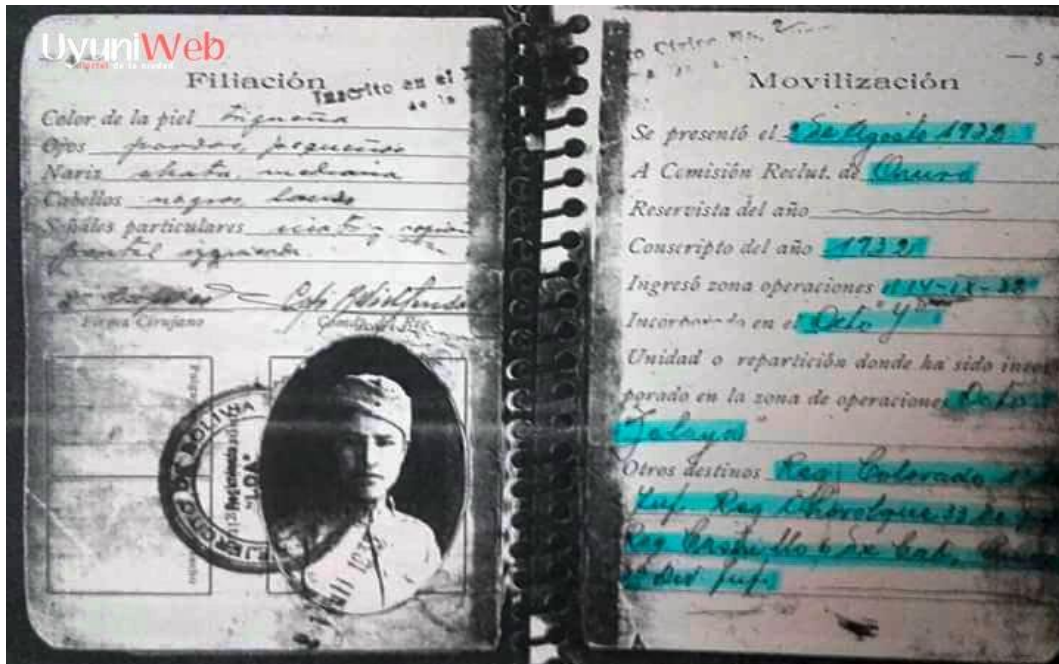 UyuniWeb
Digital de la ciudad
Filiación
Inscrito en el
de la
Color de la piel trigueña
Ojos pardos, pequeños
Nariz chata, mediana
Cabellos negros, lacio
Señales particulares
frontal izquierda
Firma Cirujano
Comdte. del Reg.
EJERCITO DE BOLIVIA
"LOA"
Cívico No. 2
— 5 —
Movilización
Se presentó el 2 de Agosto 1932
A Comisión Reclut. de Oruro
Reservista del año
Conscripto del año 1932
Ingresó zona operaciones 14-IX-32
Incorporado en el Dcto
Unidad o repartición donde ha sido incor-
porado en la zona de operaciones Dcto
Otros destinos Reg. Colorado
Inf. Reg. Chorolque 33 de
Reg. Castrillo 6 de Cab.
Div. Inf.